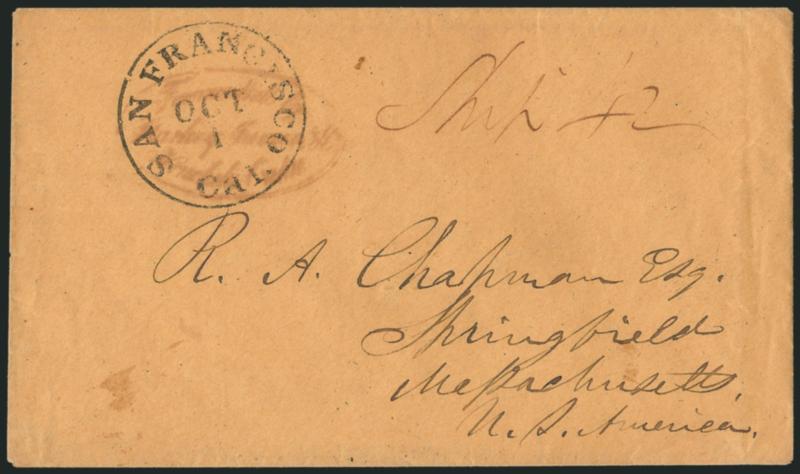 SAN FRANCISCO
OCT
1
CAL.
Ship 42
R. A. Chapman Esq.
Springfield
Massachusetts,
U. S. America.